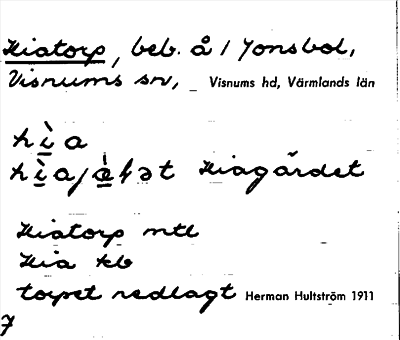 Hiatorp, beb. å 1 Jonsbol,
Visnums sn, Visnums hd, Värmlands län
hìa
hìajæ̀ḷət Hiagärdet
Hiatorp mtl
Hia kb
torpet nedlagt Herman Hultström 1911
7